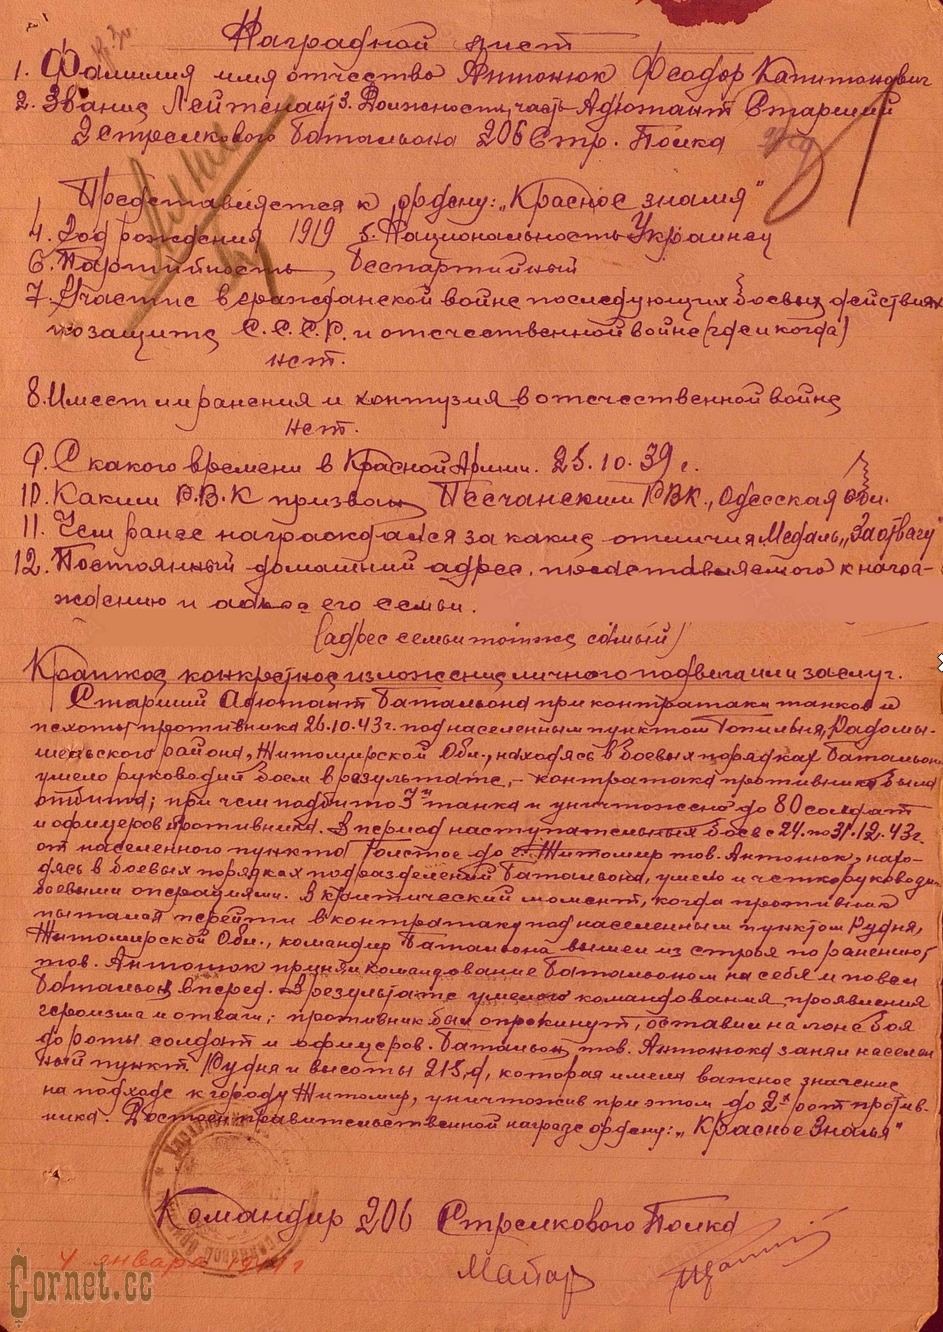 Наградной лист
1. Фамилия имя отчество Антонюк Феодор Капитонович
2. Звание Лейтенант 3. Должность, часть Адютант Старший
2 стрелкового батальона 206 Стр. Полка
Представляется к ордену: „Красное знамя"
4. Год рождения 1919 5. Национальность Украинец
6. Партийность, беспартийный
7. Участие в гражданской войне последующих боевых действиях
по защите С.С.С.Р. и отечественной войне (где и когда)
нет.
8. Имеет ли ранения и контузия в отечественной войне
нет.
9. С какого времени в Красной Армии. 25.10.39 г.
10. Каким Р.В.К призван Песчанским РВК., Одесская обл.
11. Чем ранее награждался за какие отличия Медаль „За отвагу
12. Постоянный домашний адрес, представляемого к награ-
ждению и адрес его семьи.
(адрес семьи тот же самый)
Краткое конкретное изложение личного подвига или заслуг.
Старший Адютант батальона при контратаки танков и
пехоты противника 26.10.43г. под населенным пунктом Топильня, Радомы-
шельского района, Житомирской Обл., находясь в боевых порядках батальона
умело руководил боем в результате, - контратака противника была
отбита; при чем подбито 3 танка и уничтожено до 80 солдат
и офицеров противника. В период наступательных боев с 24. по 31.12.43г.
от населенного пункта Толстое до г. Житомир тов. Антонюк, нахо-
дясь в боевых порядках подразделений батальона, умело и четко руководил
боевыми операциями. В критический момент, когда противник
пытался перейти в контратаку под населенным пунктом Рудня,
Житомирской Обл., командир батальона вышел из строя по ранению,
тов. Антонюк принял командование батальоном на себя и повел
батальон вперед. В результате умелого командования проявления
героизма и отваги; противник был опрокинут, оставил на поле боя
до роты солдат и офицеров. Батальон тов. Антонюка занял населен
ный пункт Рудня и высоты 215,9, которая имела важное значение
на подходе к городу Житомир, уничтожив при этом до 2х рот против-
ника. Достоен правительственной награде ордену: „Красное Знамя"
Командир 206 Стрелкового Полка
Майор
4 января 1944 г
Cornet.cc